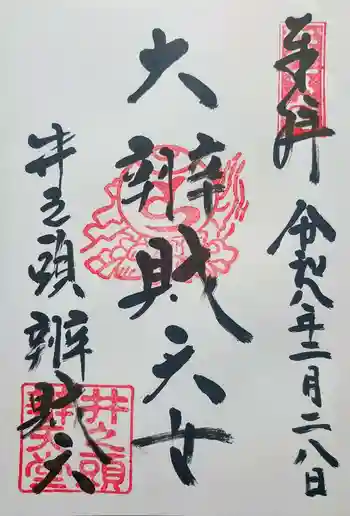 奉拝
令和八年二月二八日
大辨財天女
井之頭辨財天
井之頭
辨天堂